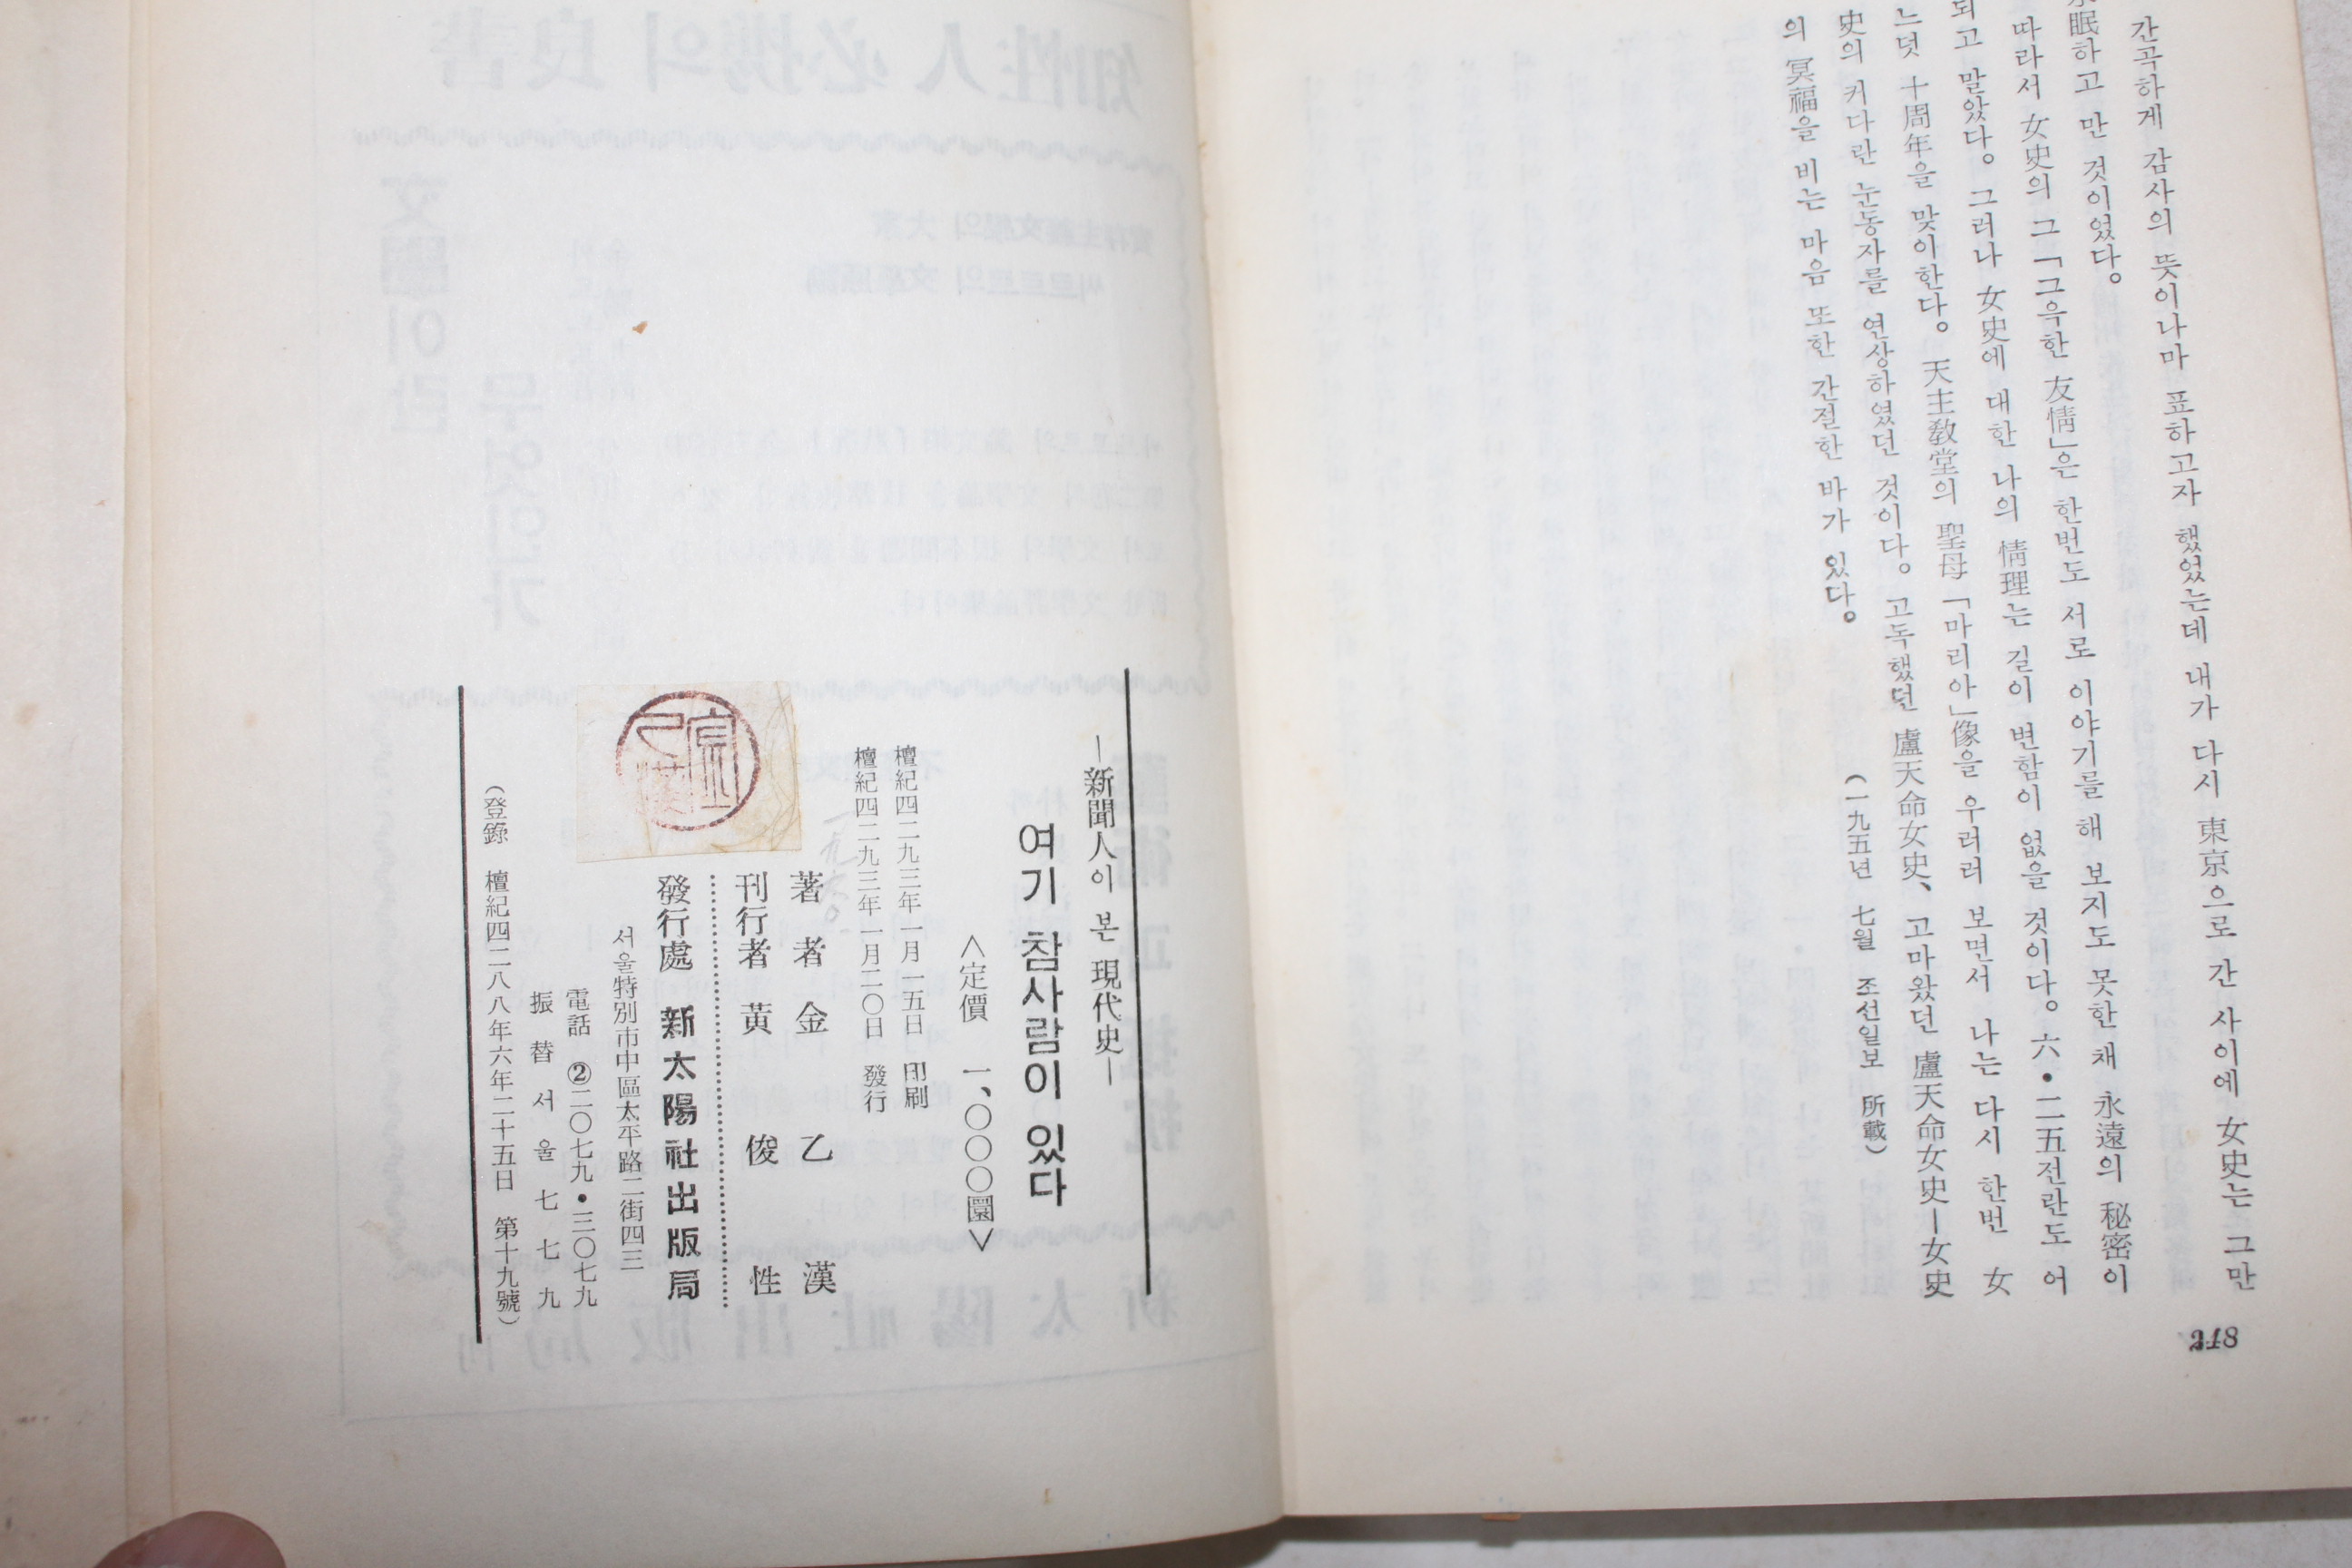 간곡하게 감사의 뜻이나마 표하고자 했었는데 내가 다시 東京으로 간 사이에 女史는 그만
永眠하고 만 것이었다。
따라서 女史의 그「그윽한 友情」은 한번도 서로 이야기를 해 보지도 못한 채 永遠의 秘密이
되고 말았다。 그러나 女史에 대한 나의 情理는 길이 변함이 없을 것이다。 六・二五전란도 어
느덧 十周年을 맞이한다。 天主敎堂의 聖母「마리아」像을 우러러 보면서 나는 다시 한번 女
史의 커다란 눈동자를 연상하였던 것이다。 고독했던 盧天命女史、 고마왔던 盧天命女史—女史
의 冥福을 비는 마음 또한 간절한 바가 있다。
(一九五년 七월 조선일보 所載)
218
—新聞人이 본 現代史—
여기 참사람이 있다
<定價 一、〇〇〇圜>
檀紀四二九三年一月一五日 印刷
檀紀四二九三年一月二〇日 發行
著者 金乙漢
刊行者 黃俊性
發行處 新太陽社出版局
서울特別市中區太平路二街四三
電話 ②二〇七九・三〇七九
振替 서울 七七九
(登錄 檀紀四二八八年六年二十五日 第十九號)